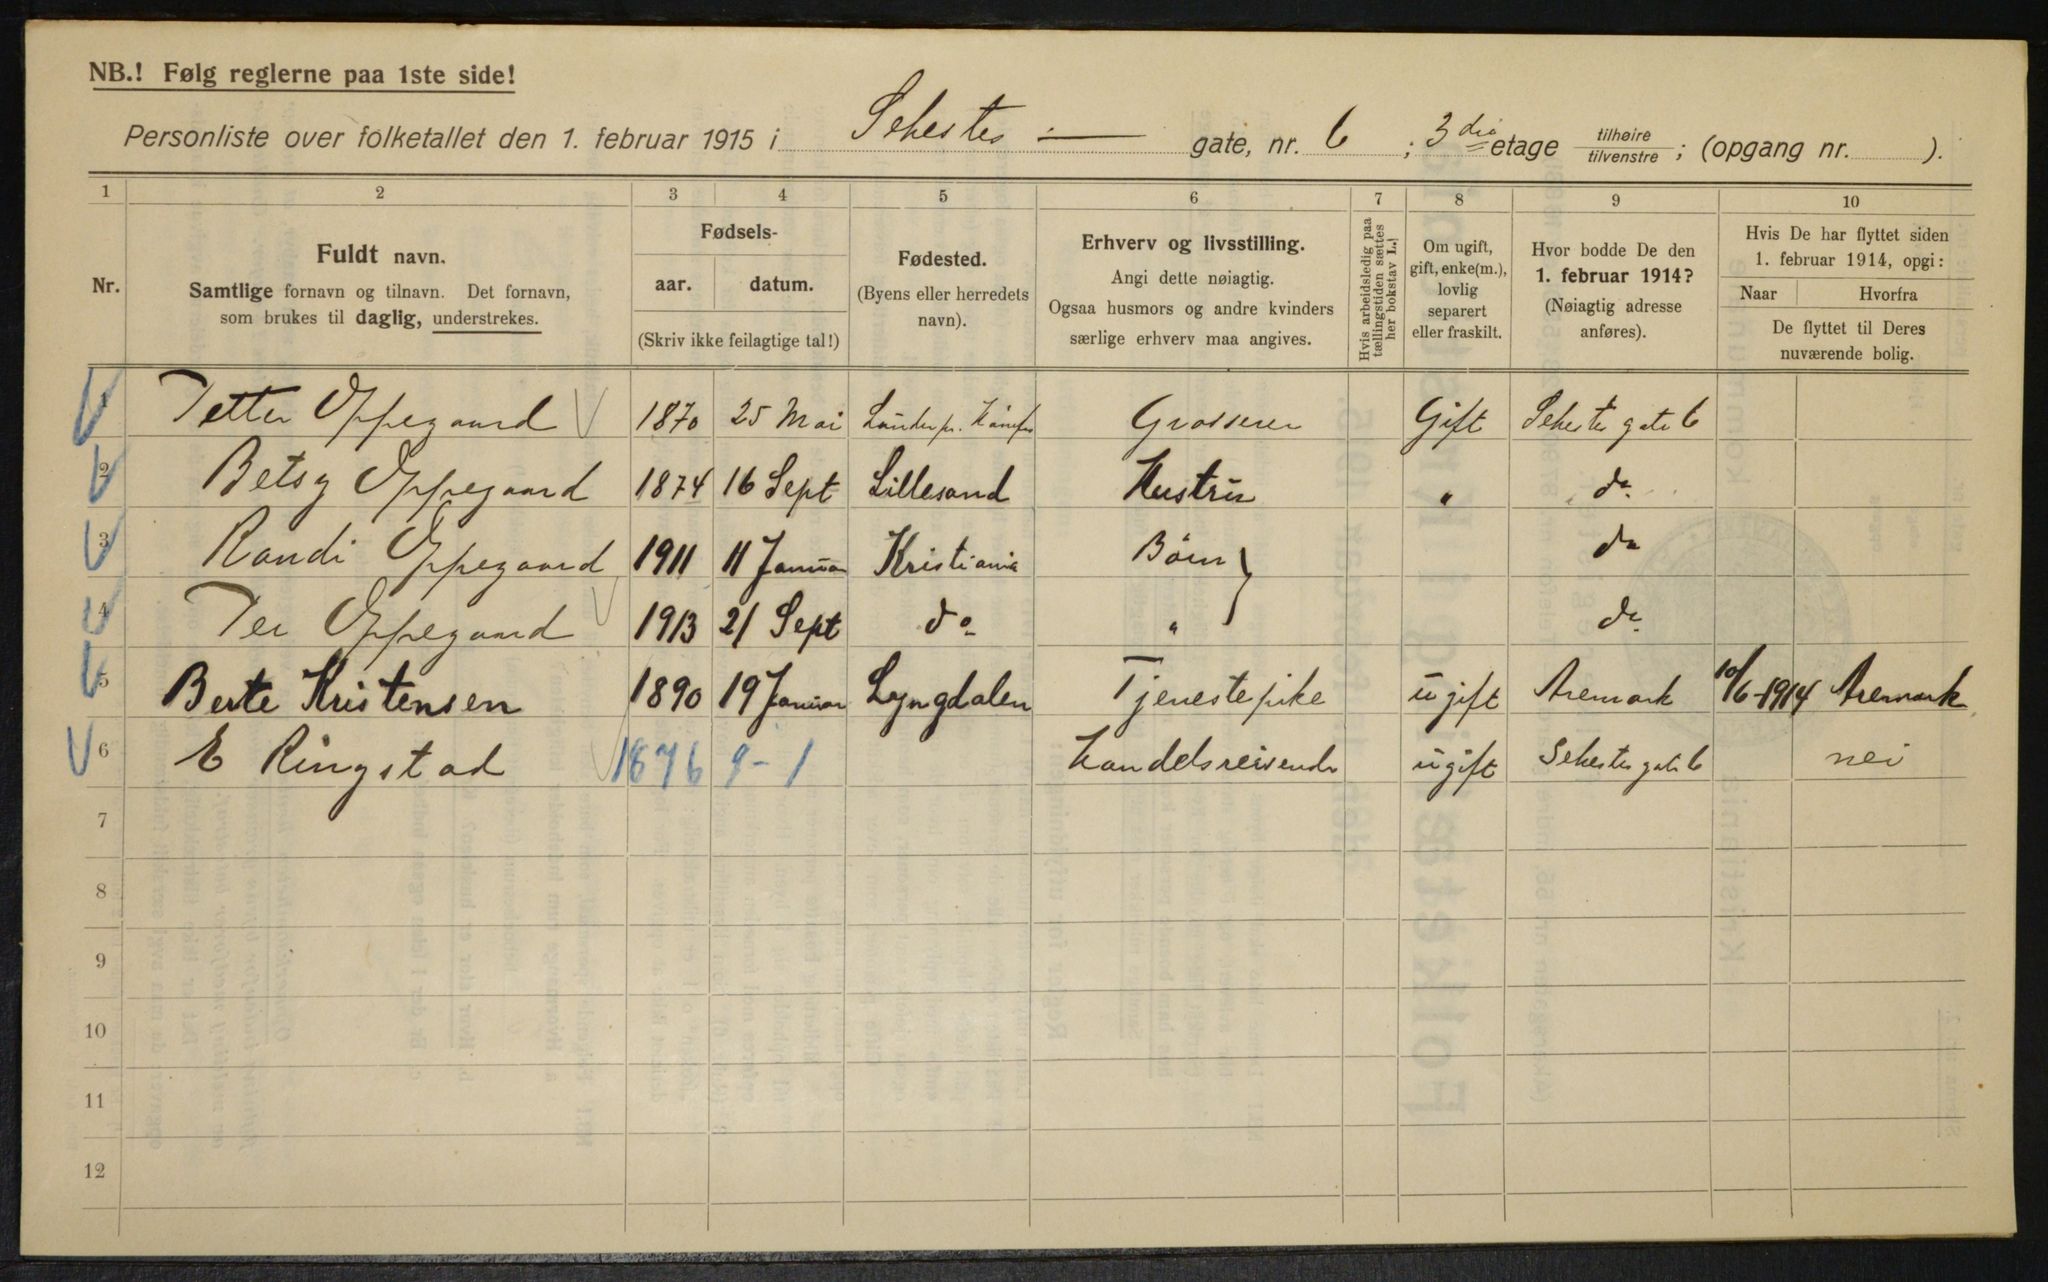 NB.! Følg reglerne paa 1ste side!
Personliste over folketallet den 1. februar 1915 i Sehestes — gate, nr. 6 ; 3die etage tilhøire/tilvenstre ; (opgang nr. ).
1 2 3 4 5 6 7 8 9 10
Nr.
Fuldt navn.
Samtlige fornavn og tilnavn. Det fornavn,
som brukes til daglig, understrekes.
Fødsels-
aar. datum.
(Skriv ikke feilagtige tal!)
Fødested.
(Byens eller herredets
navn).
Erhverv og livsstilling.
Angi dette nøiagtig.
Ogsaa husmors og andre kvinders
særlige erhverv maa angives.
Hvis arbeidsledig paa
tællingstiden sættes
her bokstav L.!
Om ugift,
gift, enke(m.),
lovlig
separert
eller fraskilt.
Hvor bodde De den
1. februar 1914?
(Nøiagtig adresse
anføres).
Hvis De har flyttet siden
1. februar 1914, opgi:
Naar Hvorfra
De flyttet til Deres
nuværende bolig.
1 Petter Oppegaard 1870 25 Mai Grosserer Gift Sehestes gate 6
2 Betsy Oppegaard 1874 16 Sept Lillesand Hustru " do.
3 Randi Oppegaard 1911 11 Januar Kristiania Börn do
4 Per Oppegaard 1913 21 Sept do " do.
5 Berte Kristensen 1890 19 Januar Lyngdalen Tjenestepike ugift Aremark 10/6-1914 Aremark
6 E Ringstad 1876 9-1 Handelsreisende ugift Sehestes gate 6 nei
7
8
9
10
11
12